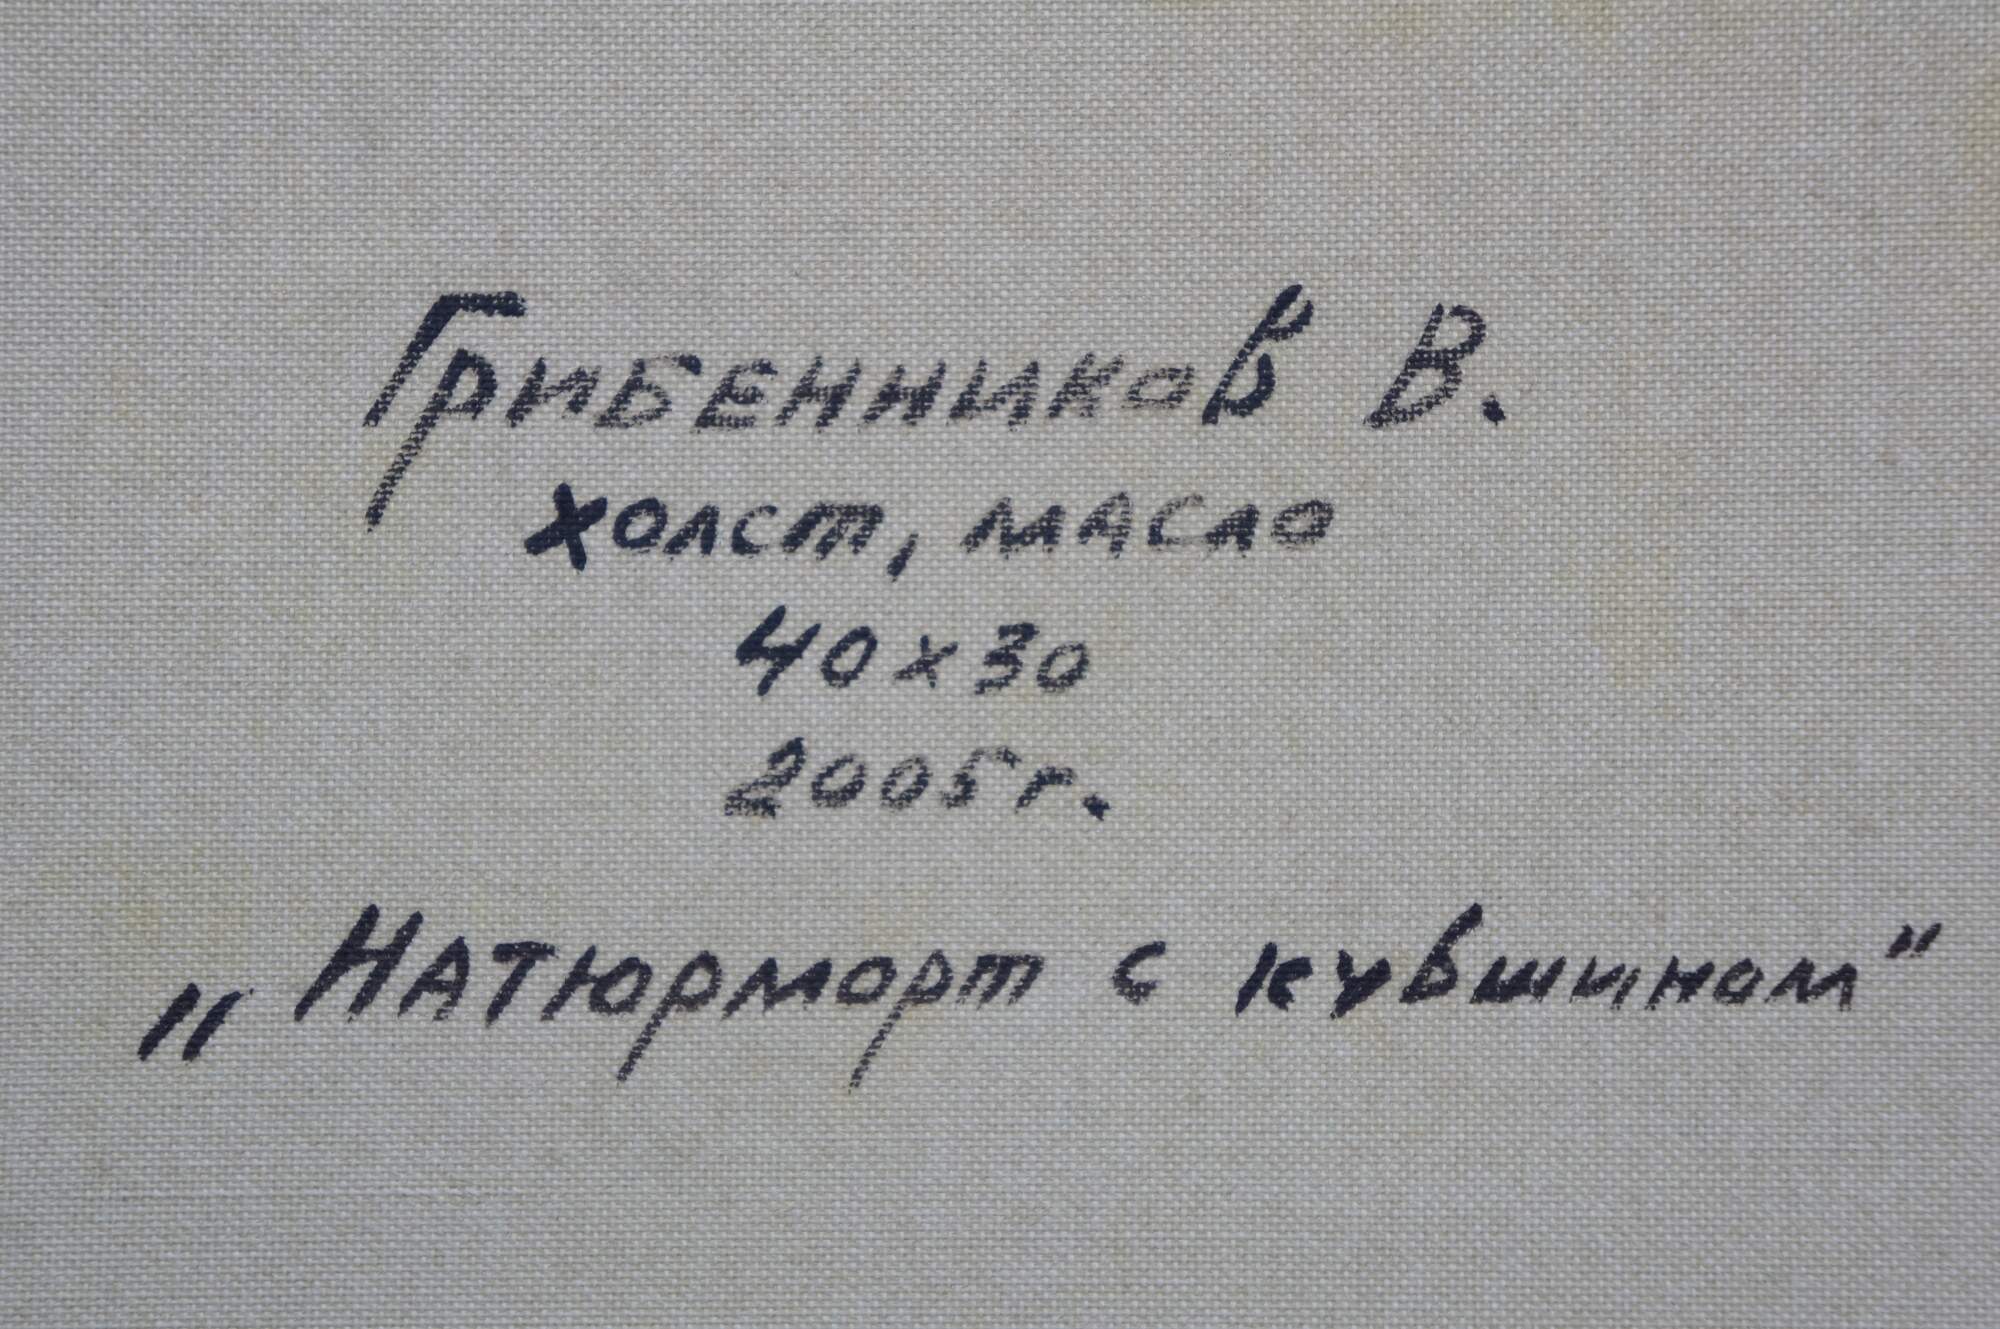 Грибенников В.
холст, масло
40x30
2005г.
„Натюрморт с кувшином"